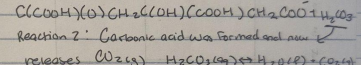 C(COOH)(O)CH2C(OH)(COOH)CH2COO- + H2CO3
Reaction 2: Carbonic acid was formed and now
releases CO2(g) H2CO3(aq) → H2O(l) + CO2(g)